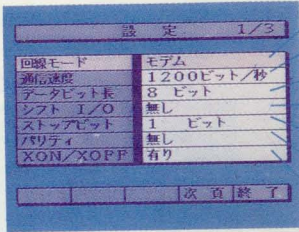 設 定 1/3
回線モード モデム
通信速度 1200ビット/秒
データビット長 8 ビット
シフト I/O 無し
ストップビット 1 ビット
パリティ 無し
XON/XOFF 有り
次頁 終了